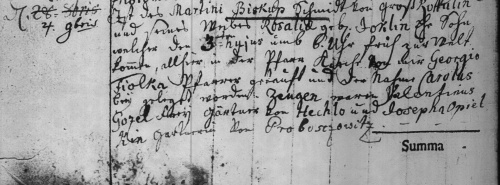 4. ist des Martini Biskup Schmidt von Groß Kottalin
und seines Weibes Rosalia geb. Johlin Sohn
welcher den 3ten hujus umb 6. Uhr früh zur Welt
komte, allhier in der Pfarr Kirch von mir Georgio
Fiolka Pfarrer getauft und der Nahme Carolus
bei gelegt worden. Zeugen waren Valentinus
Gozel Frey Gärtner von Hechlo und Josepha Opiel
Gärtnerin von Proboschowitz
Summa